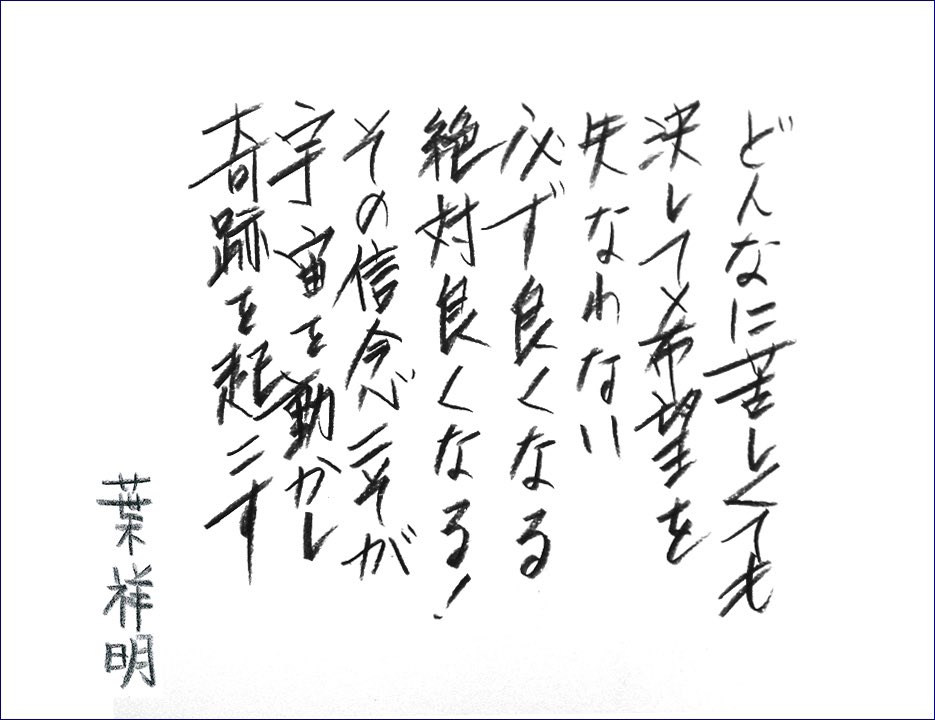 どんなに苦しくても
決して希望を
失なわない
必ず良くなる
絶対良くなる!
その信念こそが
宇宙を動かし
奇跡を起こす
葉祥明